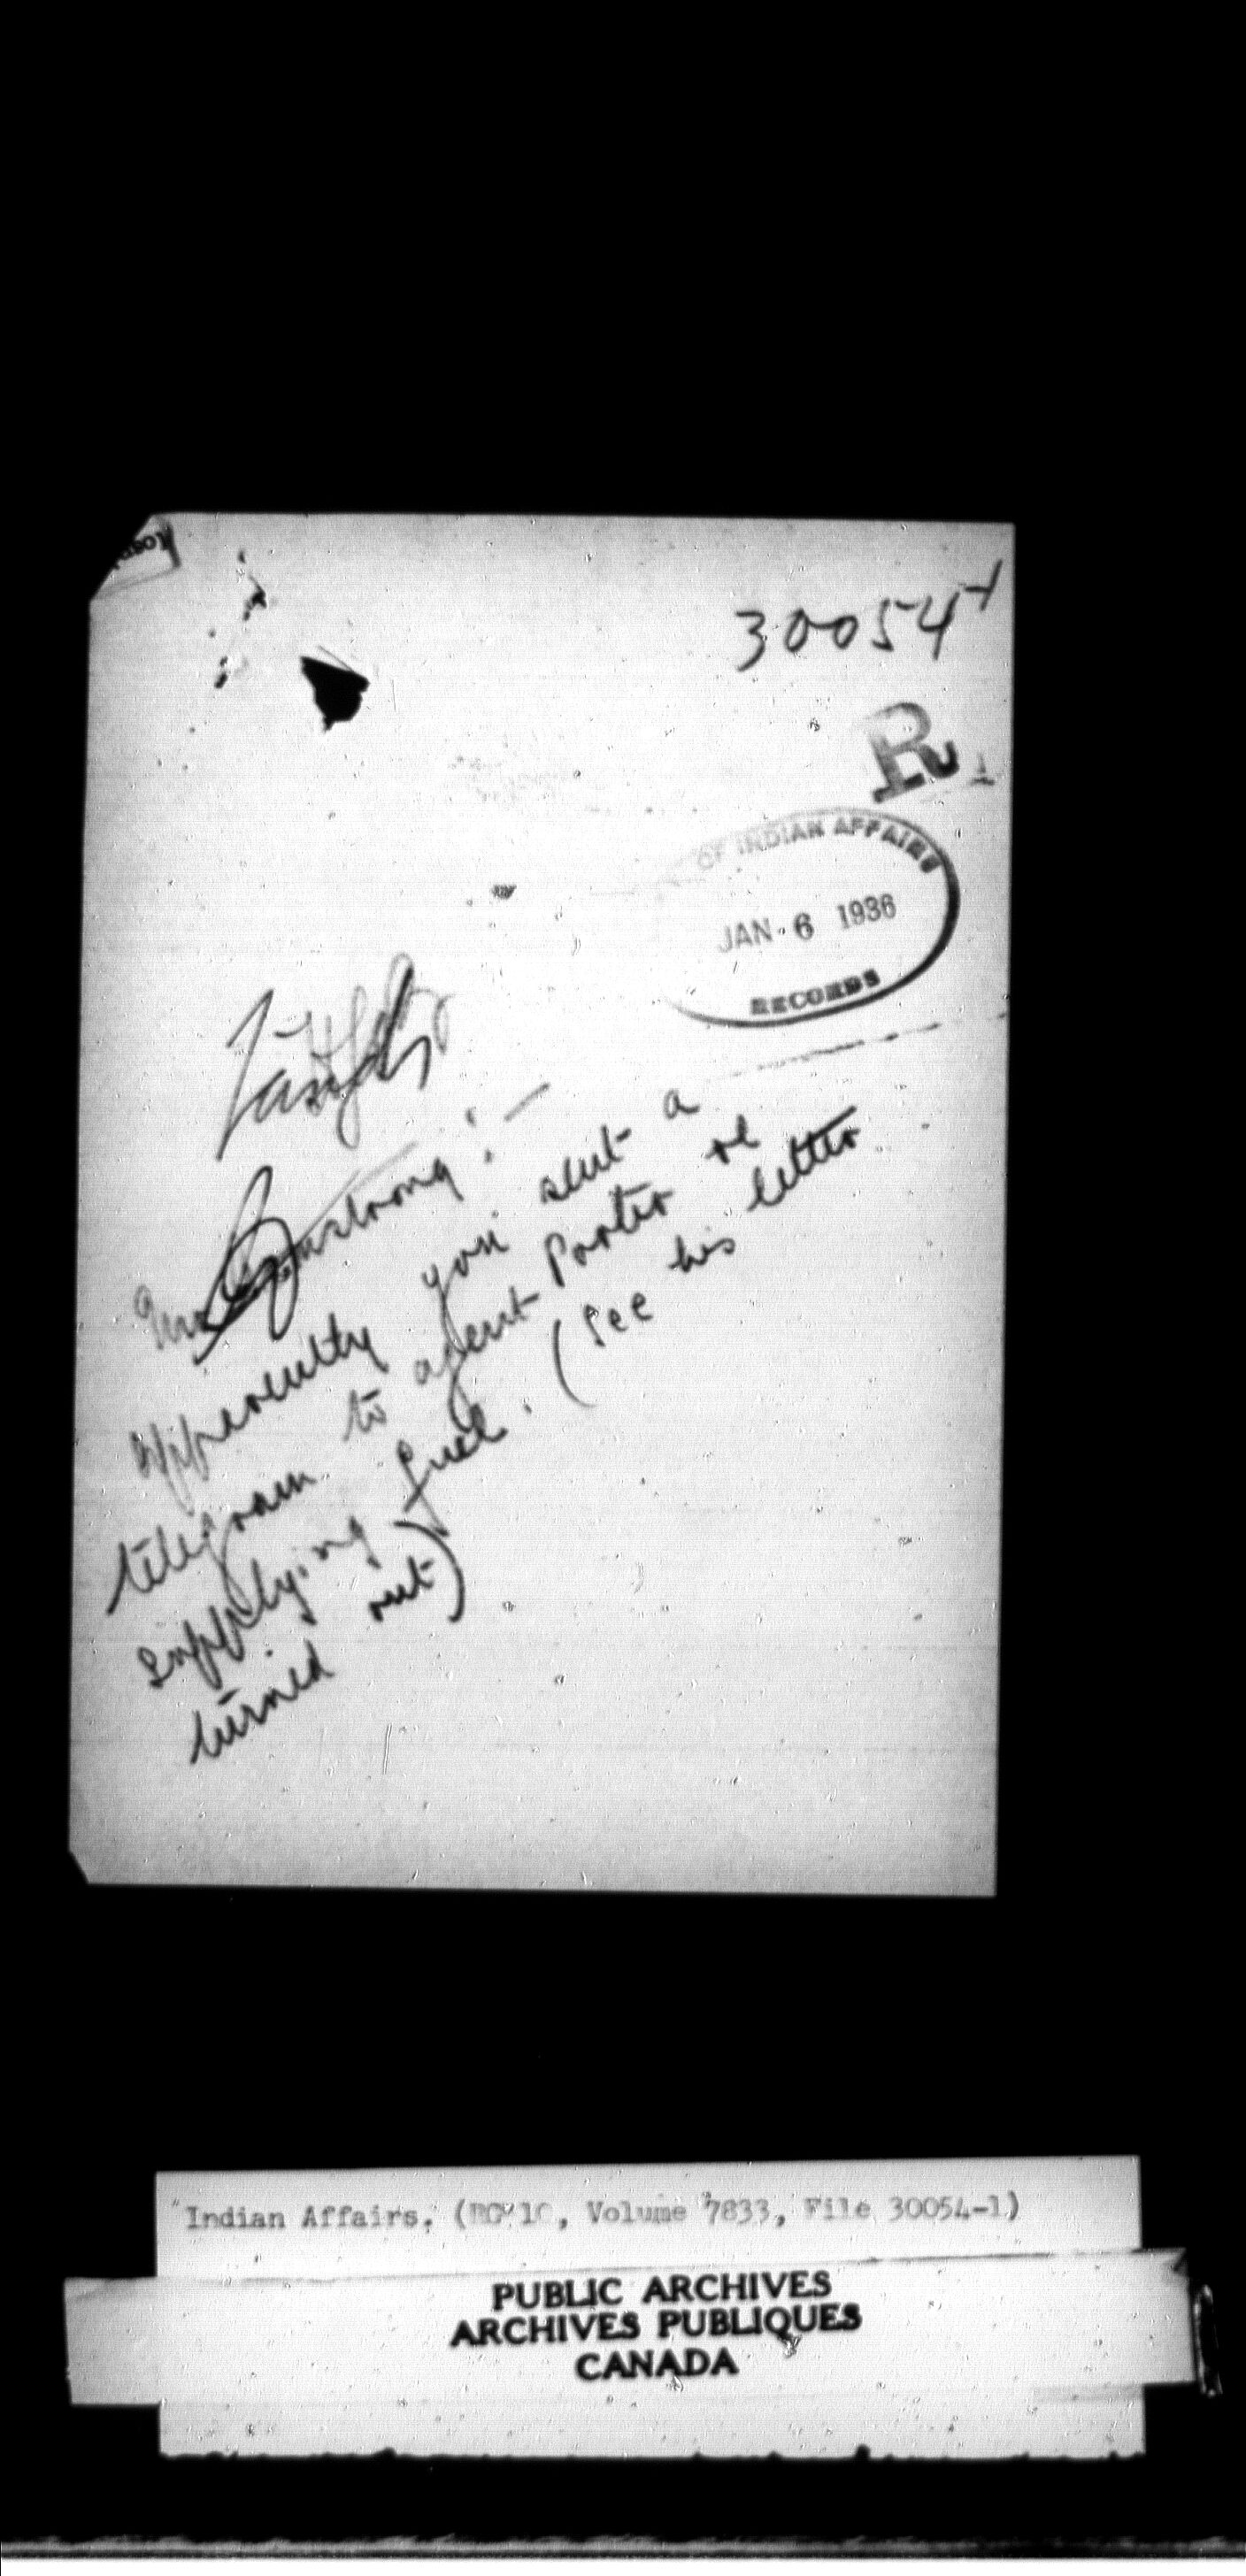 30054-1
R
OF INDIAN AFFAIRS
JAN 6 1936
RECORDS
Armstrong:—
apparently you sent a
telegram to agent Porter re
supplying fuel. (See his letter
turned out)
Indian Affairs. (RG 10, Volume 7833, File 30054-1)
PUBLIC ARCHIVES
ARCHIVES PUBLIQUES
CANADA